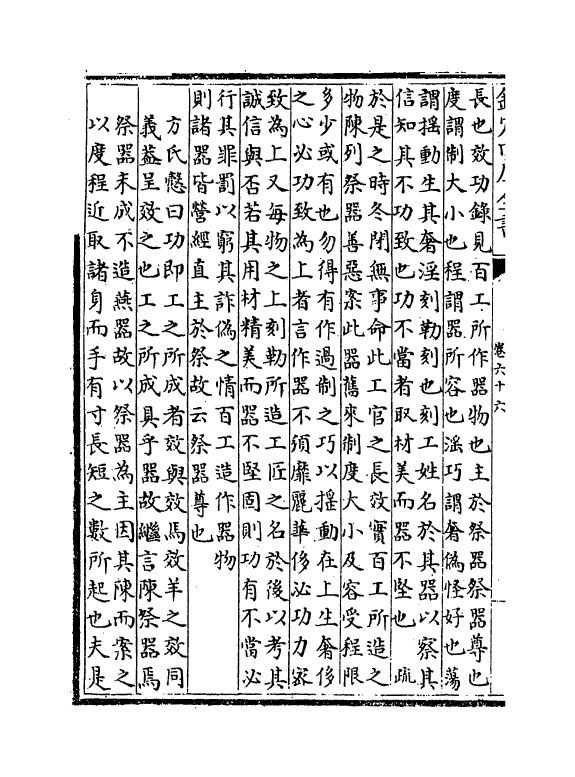 欽定四庫全書
卷六十六
長也效功錄見百工所作器物也主於祭器祭器尊也
度謂制大小也程謂器所容也滛巧謂奢偽怪好也蕩
謂揺動生其奢淫刻勒刻也刻工姓名於其器以察其
信知其不功致也功不當者取材美而器不堅也　疏
於是之時冬閉無事命此工官之長效實百工所造之
物陳列祭器善惡案此器舊來制度大小及容受程限
多少或有也勿得有作過制之巧以揺動在上生奢侈
之心必功致為上者言作器不須靡麗華侈必功力宻
致為上又每物之上刻勒所造工匠之名於後以考其
誠信與否若其用材精美而器不堅固則功有不當必
行其罪罰以窮其詐偽之情百工造作器物
則諸器皆營經直主於祭故云祭器尊也
方氏慤曰功即工之所成者效與效馬效羊之效同
義葢呈效之也工之所成具乎器故繼言陳祭器焉
祭器未成不造燕器故以祭器為主因其陳而案之
以度程近取諸身而手有寸長短之數所起也夫是